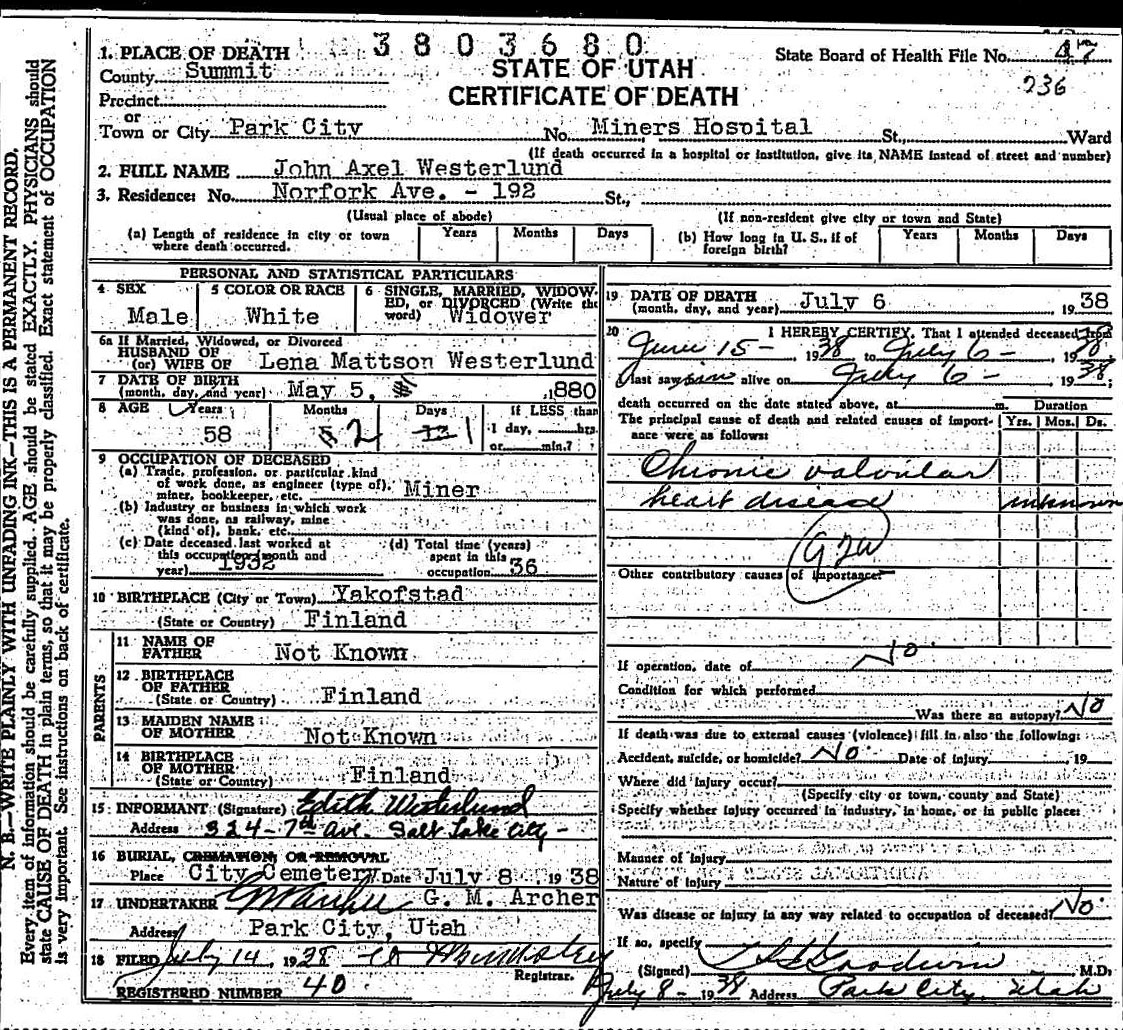 3803680
1. PLACE OF DEATH
STATE OF UTAH
State Board of Health File No. 47
County Summit
CERTIFICATE OF DEATH
236
Precinct
or
Town or City Park City No. Miners Hospital St., Ward
(If death occurred in a hospital or institution, give its NAME instead of street and number)
2. FULL NAME John Axel Westerlund
3. Residence: No. Norfork Ave. - 192 St.,
(Usual place of abode) (If non-resident give city or town and State)
(a) Length of residence in city or town where death occurred. Years Months Days
(b) How long in U. S., if of foreign birth? Years Months Days
PERSONAL AND STATISTICAL PARTICULARS
4 SEX Male
5 COLOR OR RACE White
6 SINGLE, MARRIED, WIDOWED, or DIVORCED (Write the word) Widower
6a If Married, Widowed, or Divorced
HUSBAND OF
(or) WIFE OF Lena Mattson Westerlund
7 DATE OF BIRTH
(month, day, and year) May 5, 1880
8 AGE Years Months Days If LESS than
58 2 1 1 day, hrs.
or min.?
9 OCCUPATION OF DECEASED
(a) Trade, profession, or particular kind
of work done, as engineer (type of),
miner, bookkeeper, etc. Miner
(b) Industry or business in which work
was done, as railway, mine
(kind of), bank, etc.
(c) Date deceased last worked at
this occupation (month and
year) 1932
(d) Total time (years)
spent in this
occupation 36
10 BIRTHPLACE (City or Town) Yakofstad
(State or Country) Finland
PARENTS
11 NAME OF
FATHER Not Known
12 BIRTHPLACE
OF FATHER
(State or Country) Finland
13 MAIDEN NAME
OF MOTHER Not Known
14 BIRTHPLACE
OF MOTHER
(State or Country) Finland
15 INFORMANT (Signature) Edith Westerlund
Address 324-7th Ave. Salt Lake City-
16 BURIAL, CREMATION, OR REMOVAL
Place City Cemetery Date July 8 1938
17 UNDERTAKER G. M. Archer
Address Park City, Utah
18 FILED July 14, 1938
Registrar.
REGISTERED NUMBER 40.
19 DATE OF DEATH
(month, day, and year) July 6 1938
20 I HEREBY CERTIFY, That I attended deceased from
June 15- 1938 to July 6- 1938
I last saw him alive on July 6- 1938,
death occurred on the date stated above, at m.
Duration
The principal cause of death and related causes of importance were as follows: Yrs. Mos. Ds.
Chronic valvular
heart disease unknown
92W
Other contributory causes of importance:
If operation, date of No.
Condition for which performed
Was there an autopsy? No
If death was due to external causes (violence) fill in also the following:
Accident, suicide, or homicide? No. Date of injury 19
Where did injury occur?
(Specify city or town, county and State)
Specify whether injury occurred in industry, in home, or in public place:
Manner of injury
Nature of injury
Was disease or injury in any way related to occupation of deceased? No.
If so, specify
(Signed) Goodwin M.D.
July 8- 1938 Address Park City, Utah
N. B.—WRITE PLAINLY WITH UNFADING INK—THIS IS A PERMANENT RECORD.
Every item of information should be carefully supplied. AGE should be stated EXACTLY. PHYSICIANS should
state CAUSE OF DEATH in plain terms, so that it may be properly classified. Exact statement of OCCUPATION
is very important. See instructions on back of certificate.